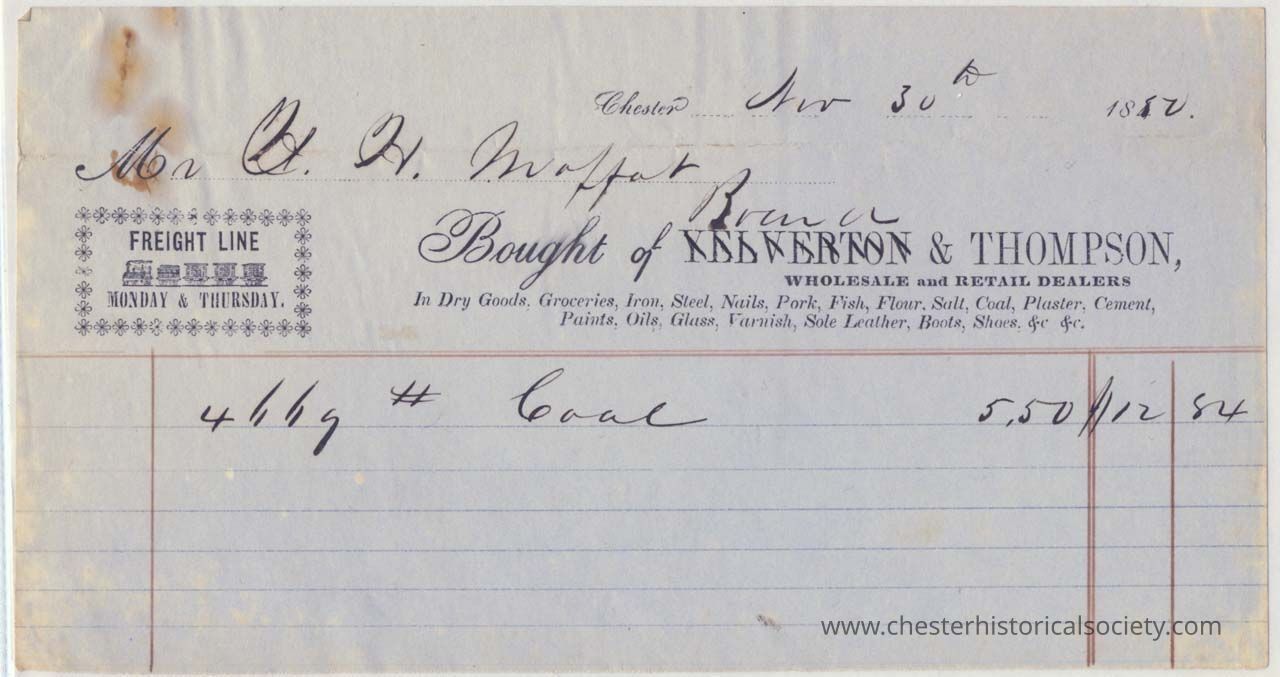 Chester Nov 30th 1850.
Mr H. H. Moffat
FREIGHT LINE
MONDAY & THURSDAY.
Bought of YELVERTON & THOMPSON,
WHOLESALE and RETAIL DEALERS
In Dry Goods, Groceries, Iron, Steel, Nails, Pork, Fish, Flour, Salt, Coal, Plaster, Cement,
Paints, Oils, Glass, Varnish, Sole Leather, Boots, Shoes, &c &c.
4669 # Coal 5.50 $12 84
www.chesterhistoricalsociety.com